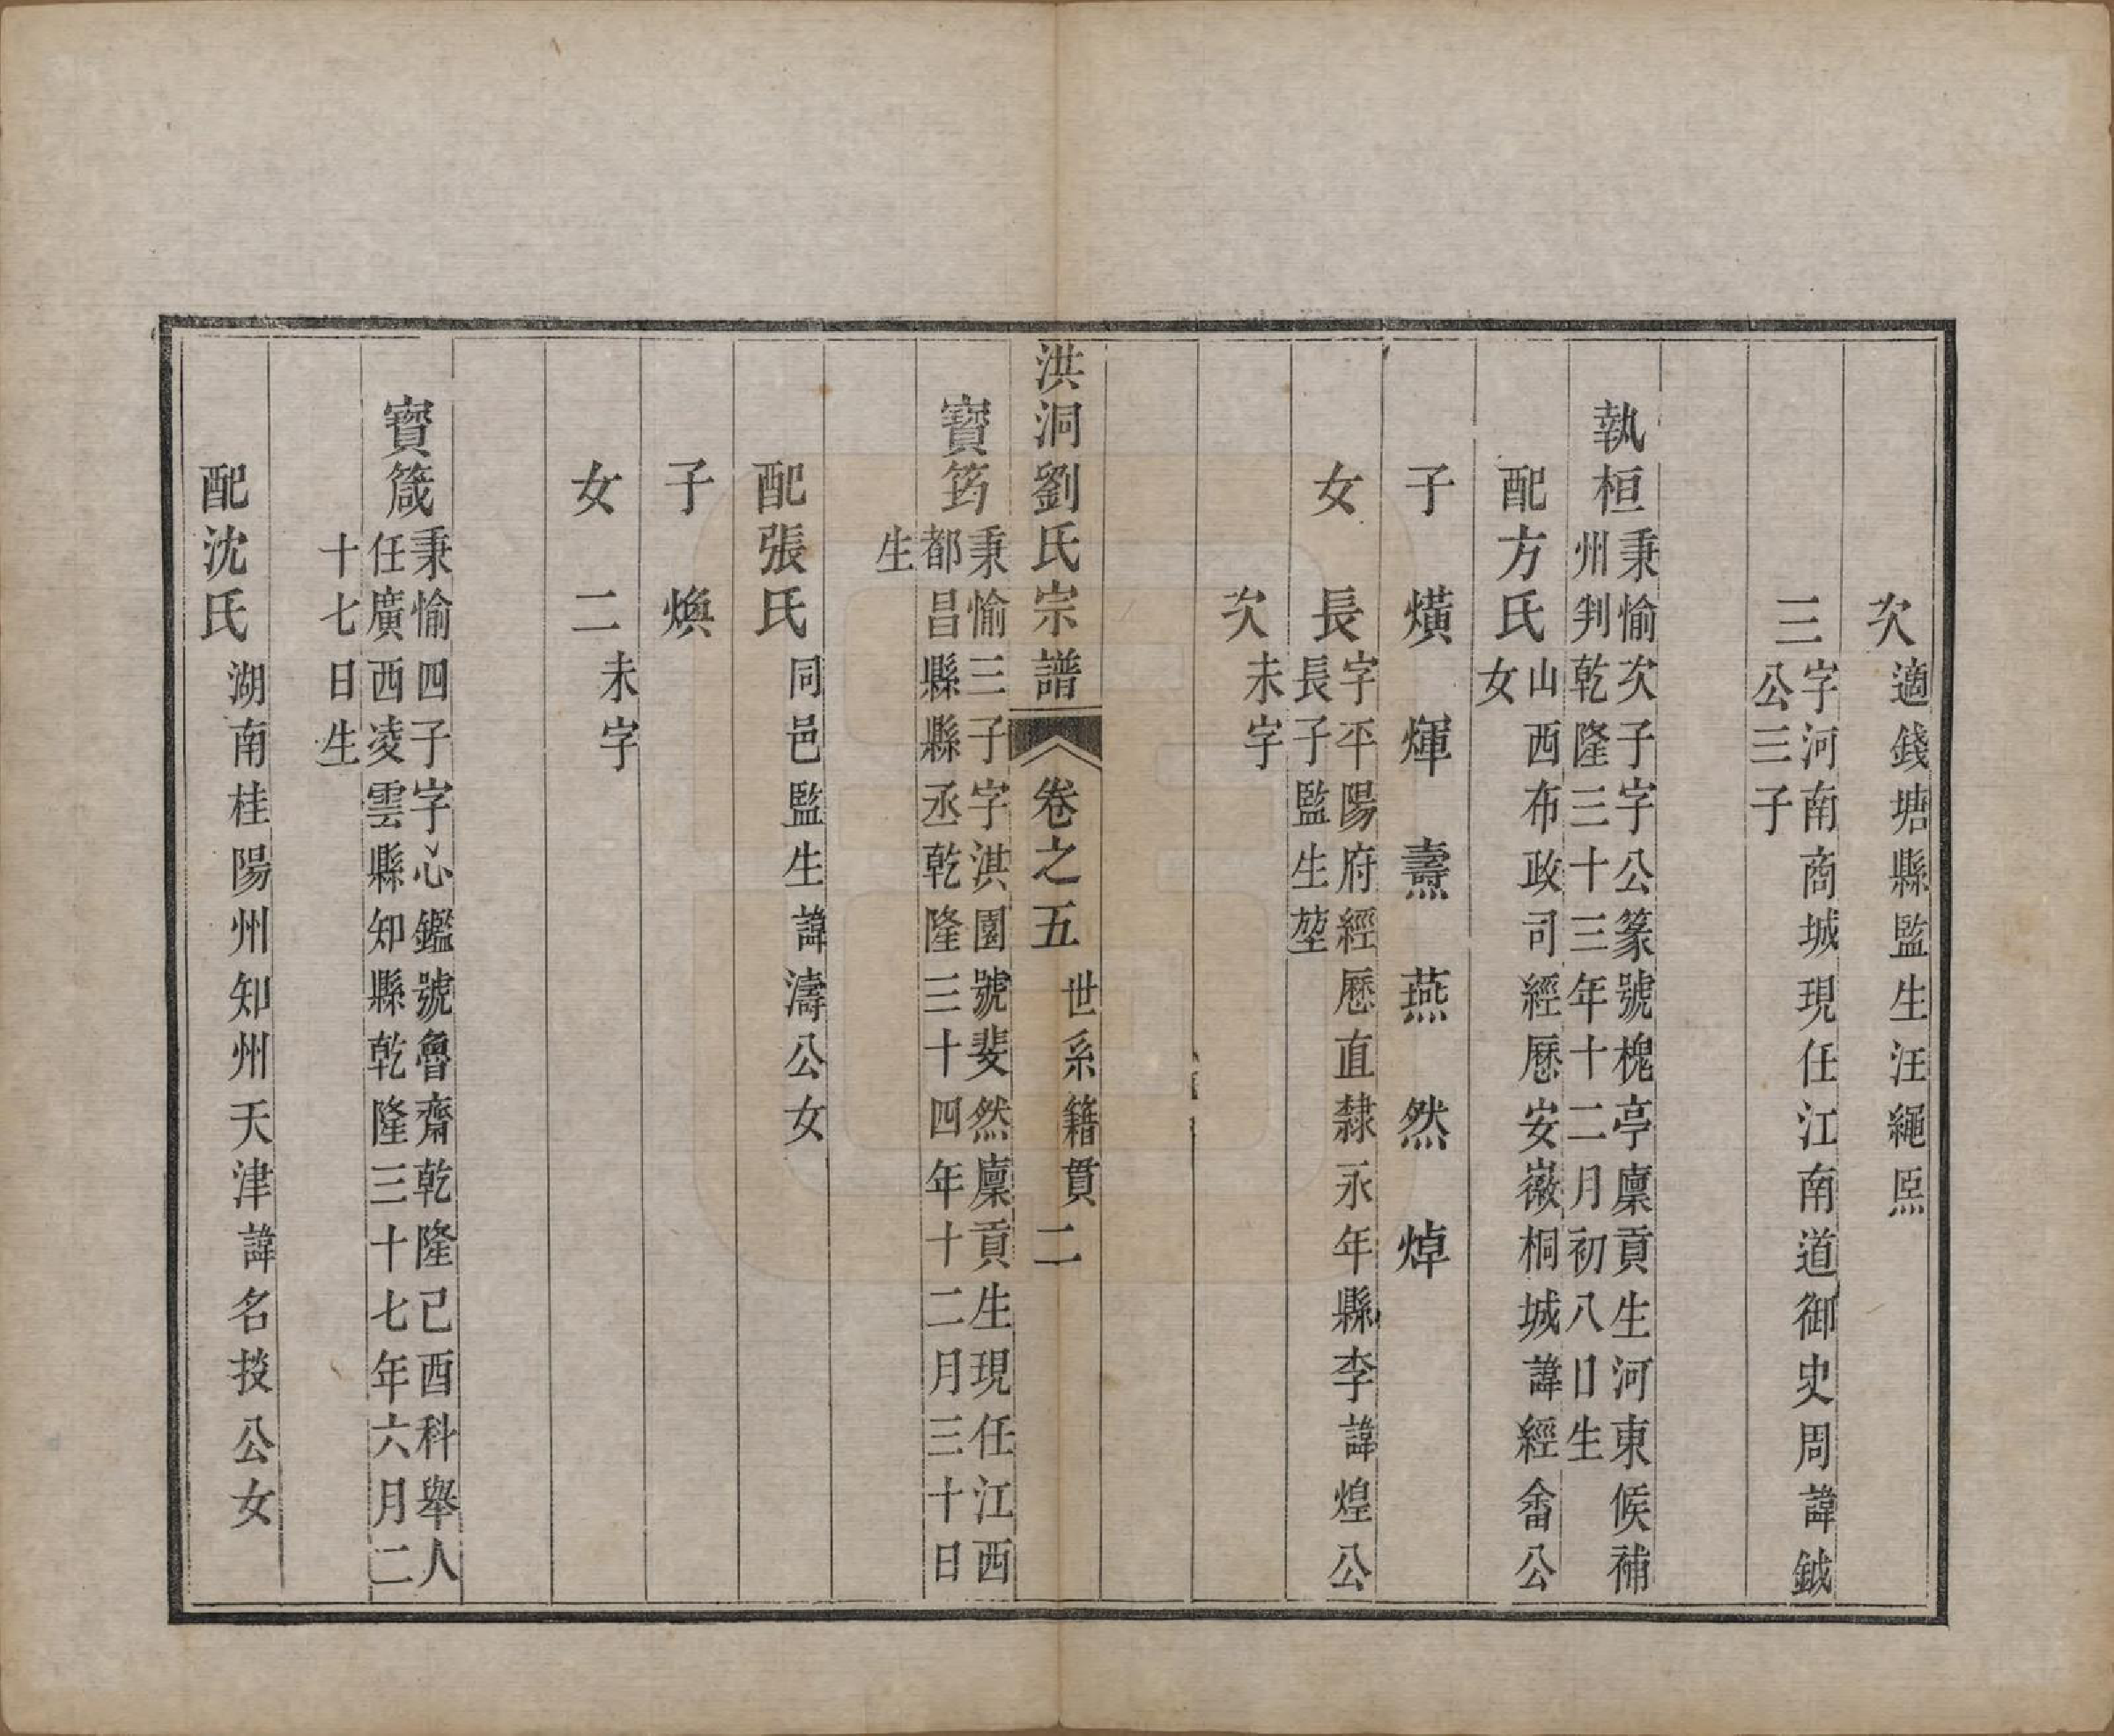 次適錢塘縣監生汪繩㷛
三字河南商城現任江南道御史周諱鉞
公三子
執桓秉愉次子字公篆號槐亭廩貢生河東候補
州判乾隆三十三年十二月初八日生
配方氏山西布政司經歷安徽桐城諱經畬公
女
子熿㷇燾燕然焯
女長字平陽府經歷直隸永年縣李諱煌公
長子監生堃
次未字
洪洞劉氏宗譜 卷之五 世系籍貫 二
寶筠秉愉三子字淇園號斐然廩貢生現任江西
都昌縣縣丞乾隆三十四年十二月三十日
生
配張氏同邑監生諱濤公女
子煥
女二未字
寶箴秉愉四子字心鑑號魯齋乾隆己酉科舉人
任廣西凌雲縣知縣乾隆三十七年六月二
十七日生
配沈氏湖南桂陽州知州天津諱名掞公女